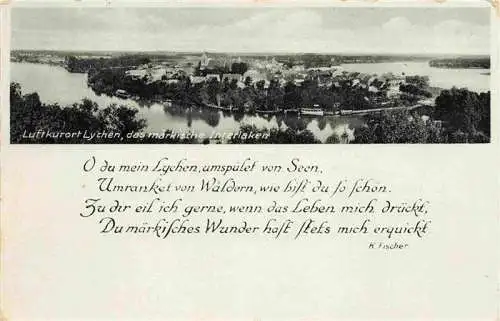 Luftkurort Lychen, das märkische Interlaken
O du mein Lychen, umspület von Seen,
Umranket von Wäldern, wie bist du so schön.
Zu dir eil ich gerne, wenn das Leben mich drückt,
Du märkisches Wunder hast stets mich erquickt
K. Fischer